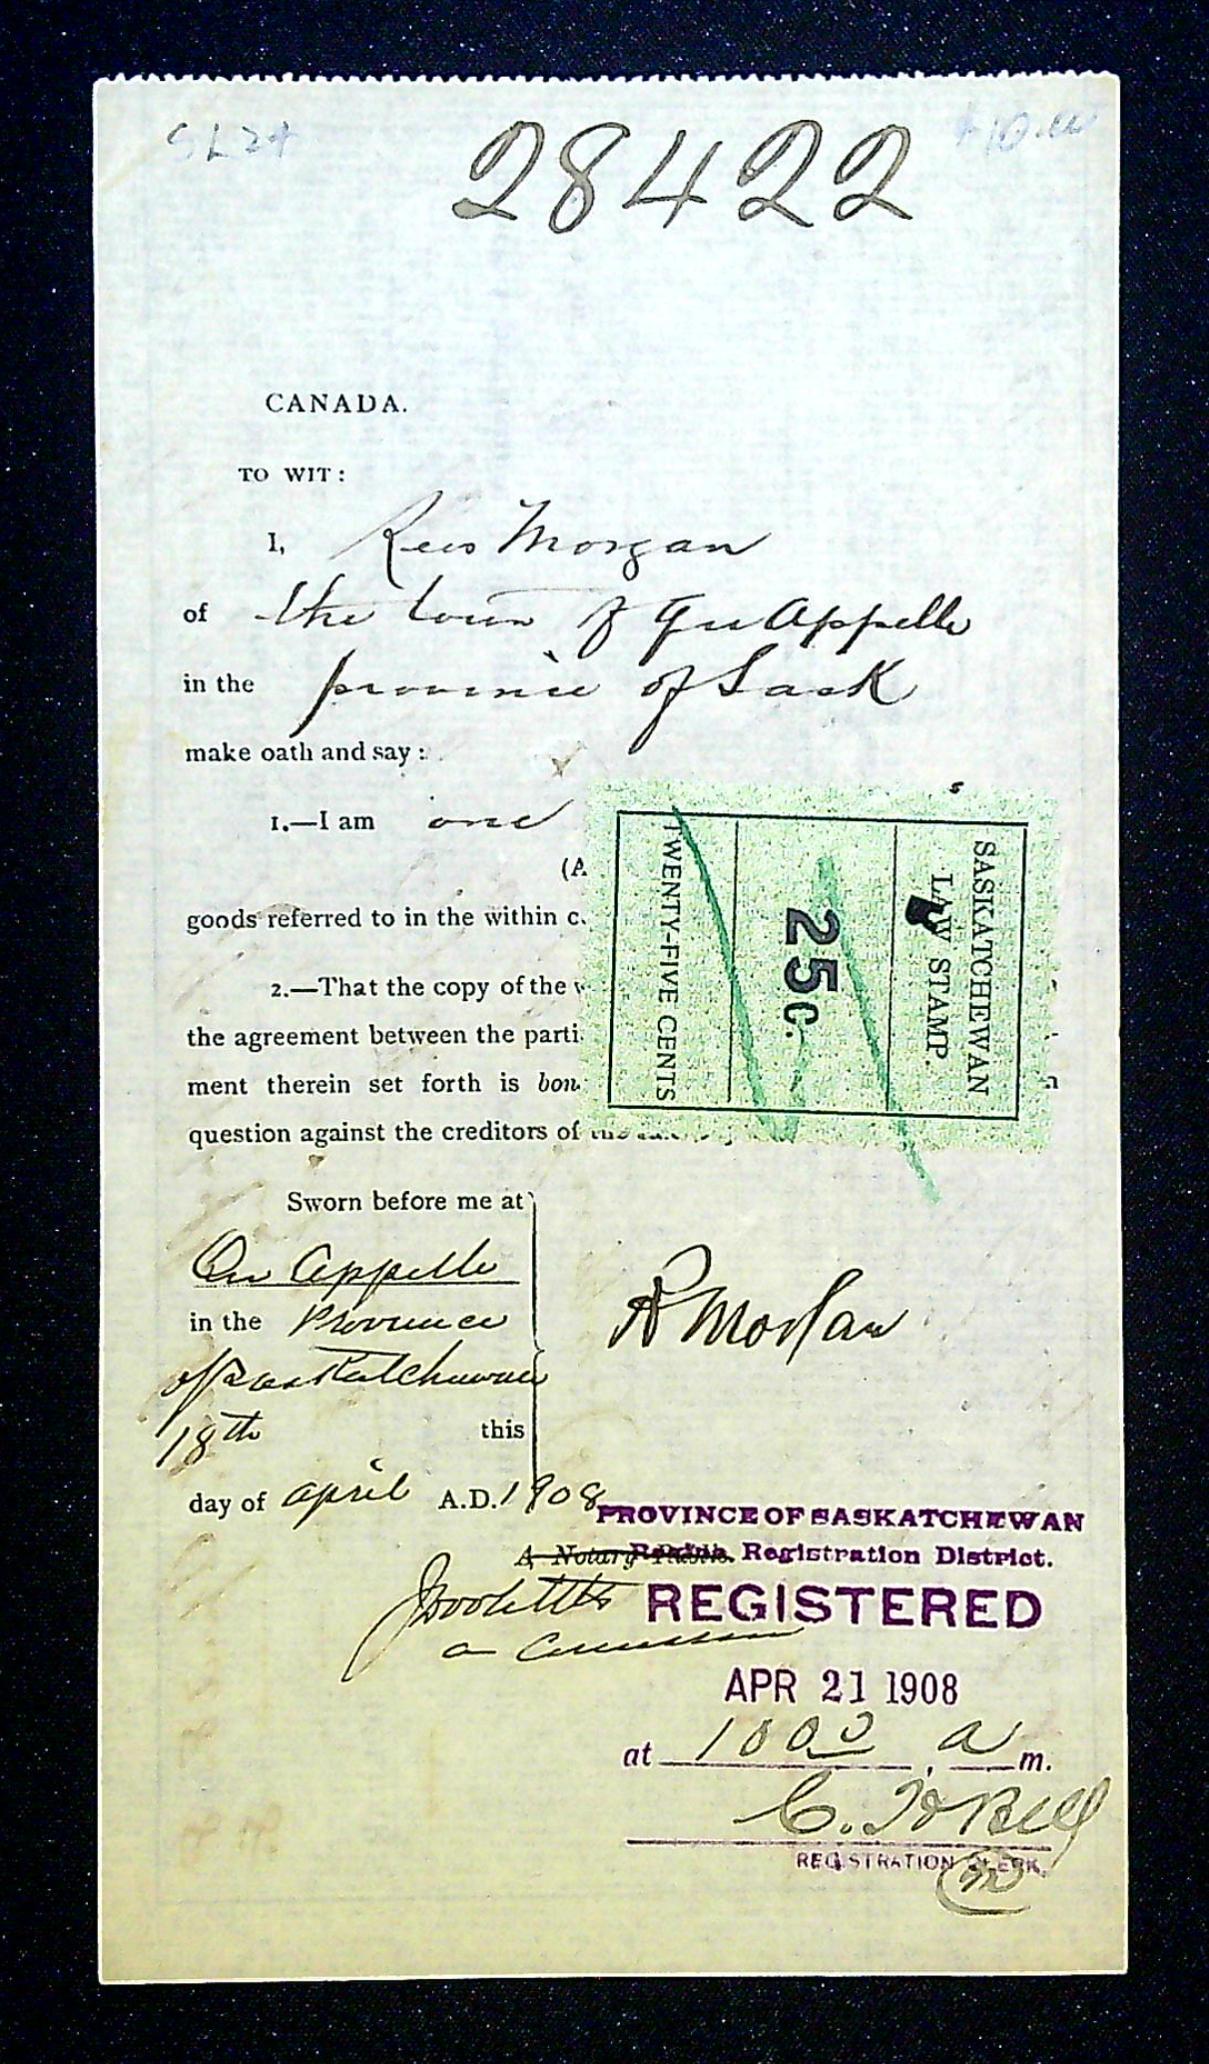 SL24 $10.00
28422
CANADA.
TO WIT:
I, Rees Morgan
of the town of Qu Appelle
in the province of Sask
make oath and say:
1.—I am one
(A
goods referred to in the within c
2.—That the copy of the
the agreement between the parti
ment therein set forth is bon
question against the creditors of
SASKATCHEWAN
LAW STAMP.
25c.
TWENTY-FIVE CENTS
Sworn before me at
Qu Appelle
in the Province
of Saskatchewan
18th this
day of april A.D. 1908
R Morgan
A Notary Public.
a Commissioner
PROVINCE OF SASKATCHEWAN
Regina Registration District.
REGISTERED
APR 21 1908
at 10 00 a m.
REGISTRATION CLERK.